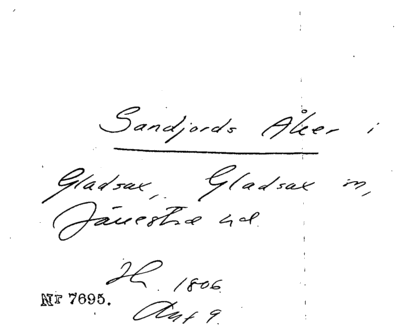 Sandjords Åker i
Gladsax, Gladsax sn,
Järrestad hd.
1806
Nr 7695.
Akt 9.